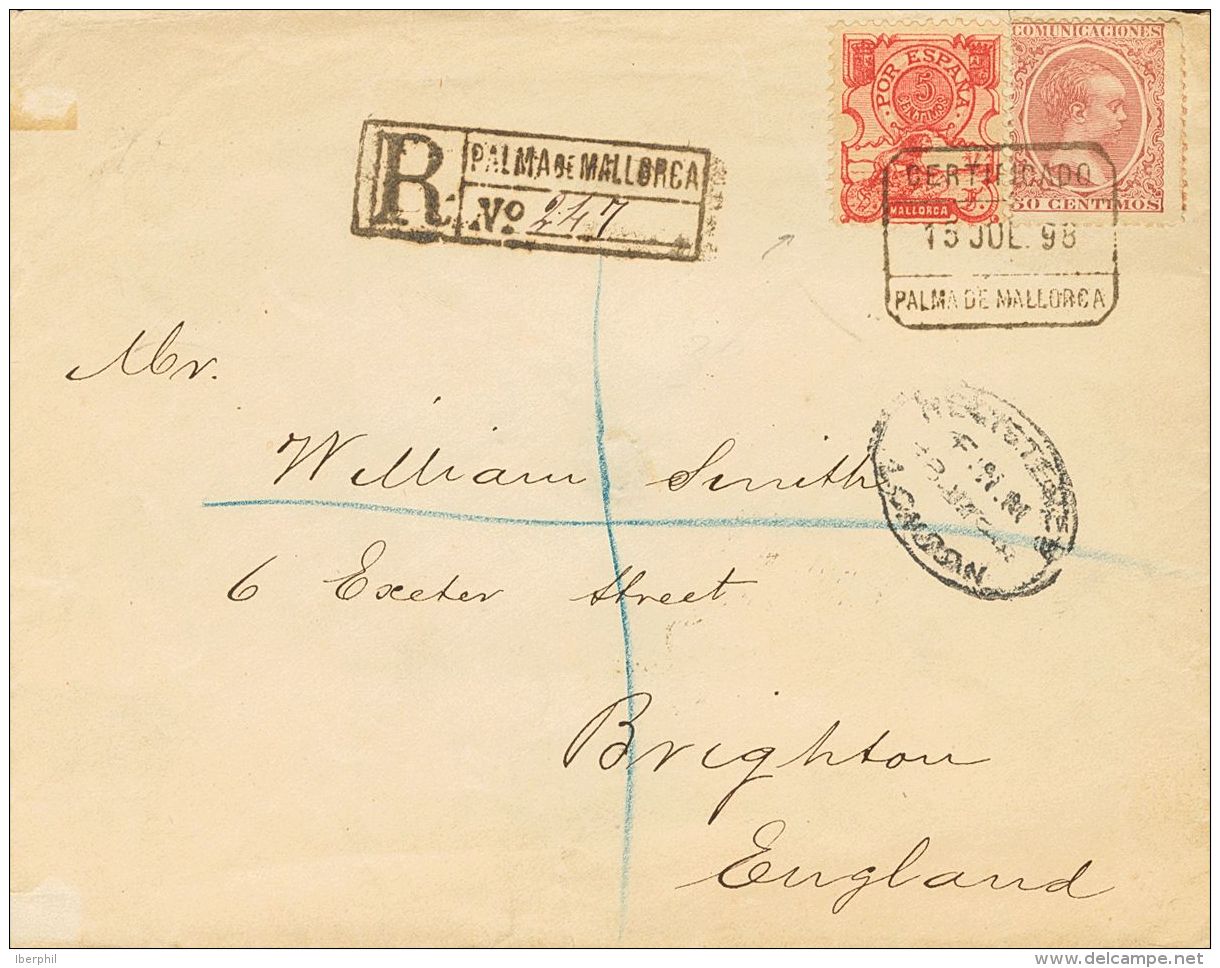 POR ESPAÑA
5
CENTIMOS
MALLORCA
COMUNICACIONES
50 CENTIMOS
R
PALMA DE MALLORCA
No 247
CERTIFICADO
15 JUL. 98
PALMA DE MALLORCA
Mr.
William Smith
6 Exeter Street
Brighton
England
REGISTERED
LONDON
Iberphil
delcampe.net